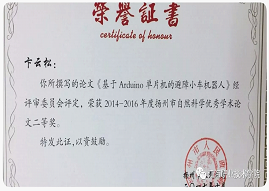 荣誉证书
certificate of honour
卞云松：
你所撰写的论文《基于Arduino单片机的避障小车机器人》经
评审委员会评定，荣获2014-2016年度扬州市自然科学优秀学术论
文二等奖。
特发此证，以资鼓励。